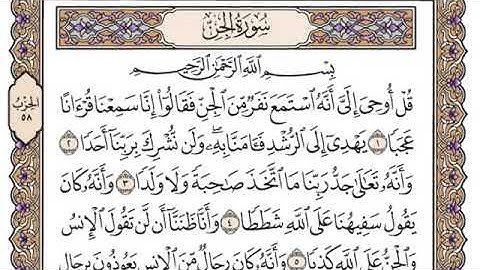 سُورَةُ الجِنِّ
بِسْمِ اللَّهِ الرَّحْمَٰنِ الرَّحِيمِ
قُلْ أُوحِيَ إِلَيَّ أَنَّهُ ٱسْتَمَعَ نَفَرٌ مِّنَ ٱلْجِنِّ فَقَالُوٓا۟ إِنَّا سَمِعْنَا قُرْءَانًا
عَجَبًا ١ يَهْدِىٓ إِلَى ٱلرُّشْدِ فَـَٔامَنَّا بِهِۦ وَلَن نُّشْرِكَ بِرَبِّنَآ أَحَدًا ٢
وَأَنَّهُۥ تَعَٰلَىٰ جَدُّ رَبِّنَا مَا ٱتَّخَذَ صَٰحِبَةً وَلَا وَلَدًا ٣ وَأَنَّهُۥ كَانَ
يَقُولُ سَفِيهُنَا عَلَى ٱللَّهِ شَطَطًا ٤ وَأَنَّا ظَنَنَّآ أَن لَّن تَقُولَ ٱلْإِنسُ
وَٱلْجِنُّ عَلَى ٱللَّهِ كَذِبًا ٥ وَأَنَّهُۥ كَانَ رِجَالٌ مِّنَ ٱلْإِنسِ يَعُوذُونَ بِرِجَالٍ
الحِزْبُ
٥٨